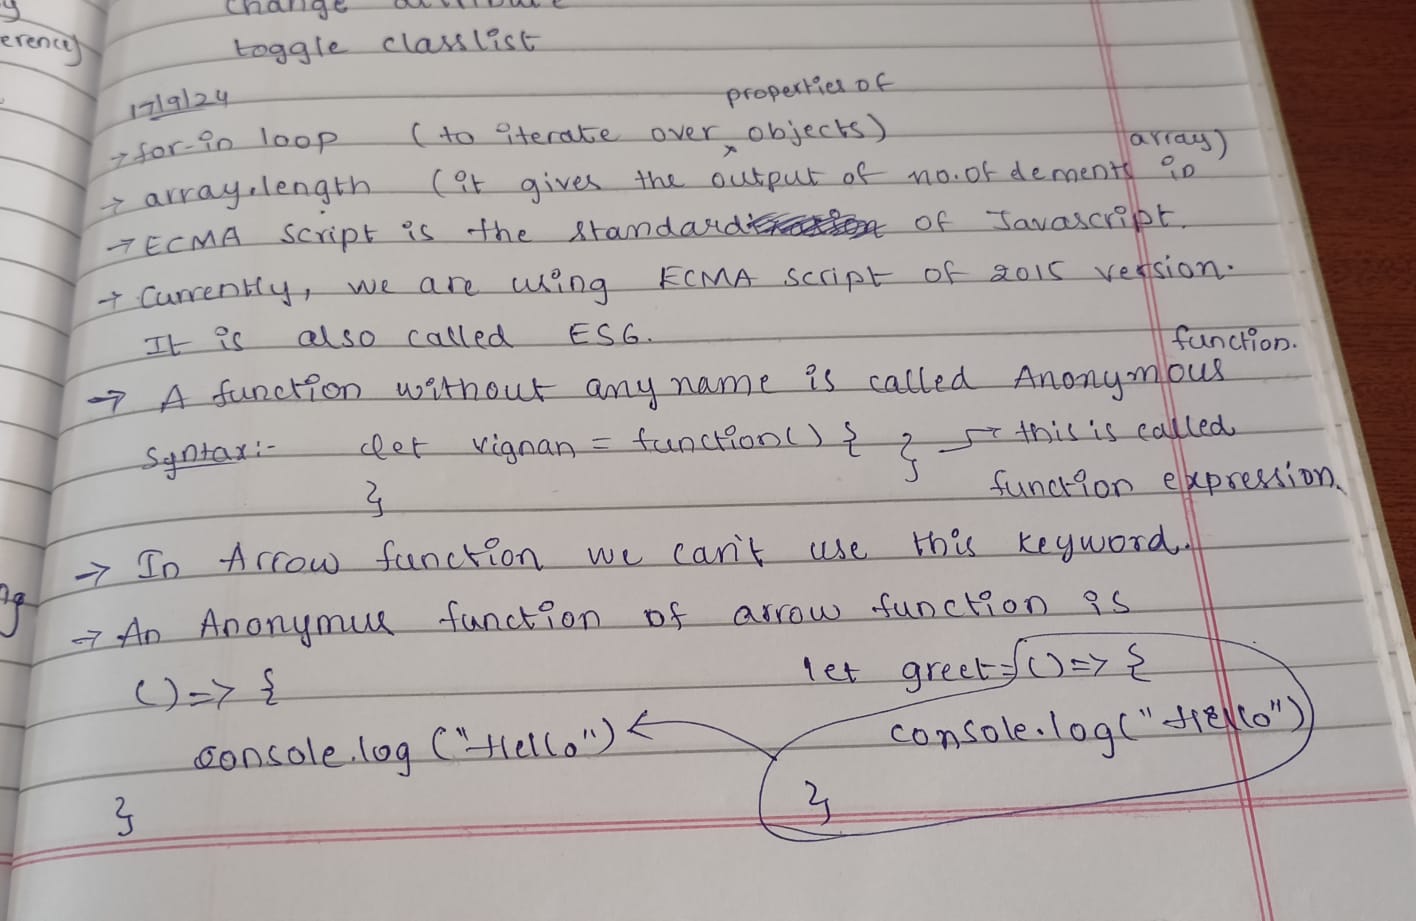 change attribute
erence)
toggle classlist
17/9/24
→ for-in loop (to iterate over properties of objects)
→ array.length (it gives the output of no.of elements in array)
→ ECMA Script is the standard of Javascript.
→ Currently, we are using ECMA script of 2015 version.
It is also called ES6.
→ A function without any name is called Anonymous function.
Syntax:- let vignan = function() { } → this is called
} function expression.
→ In Arrow function we can't use this keyword.
→ An Anonymus function of arrow function is
() => { let greet = () => {
console.log ("Hello") console.log("Hello")
} }